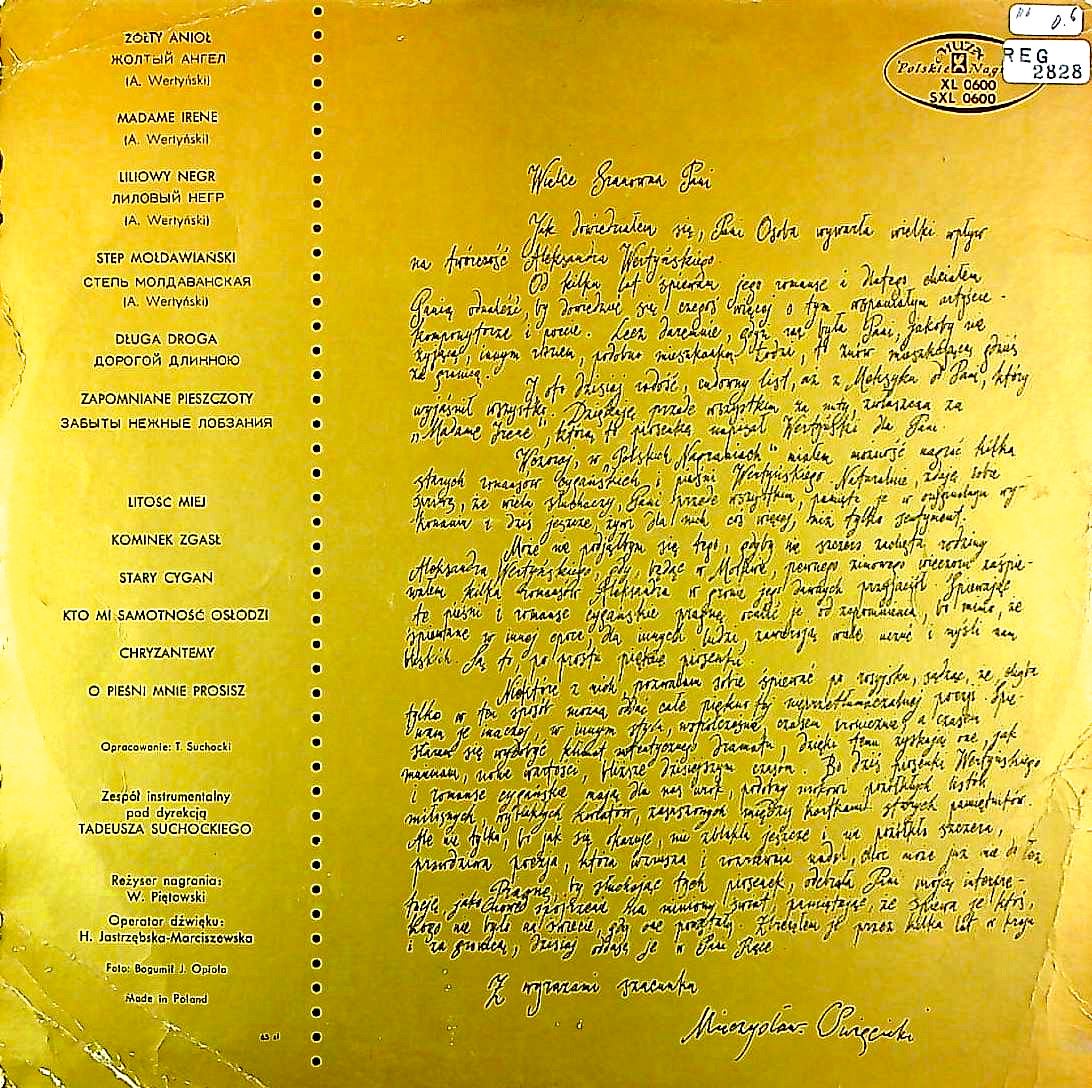 ŻÓŁTY ANIOŁ
ЖОЛТЫЙ АНГЕЛ
(A. Wertyński)
MADAME IRENE
(A. Wertyński)
LILIOWY NEGR
ЛИЛОВЫЙ НЕГР
(A. Wertyński)
STEP MOŁDAWIAŃSKI
СТЕПЬ МОЛДАВАНСКАЯ
(A. Wertyński)
DŁUGA DROGA
ДОРОГОЙ ДЛИННОЮ
ZAPOMNIANE PIESZCZOTY
ЗАБЫТЫ НЕЖНЫЕ ЛОБЗАНИЯ
LITOŚĆ MIEJ
KOMINEK ZGASŁ
STARY CYGAN
KTO MI SAMOTNOŚĆ OSŁODZI
CHRYZANTEMY
O PIEŚNI MNIE PROSISZ
Opracowanie: T. Suchocki
Zespół instrumentalny
pod dyrekcją
TADEUSZA SUCHOCKIEGO
Reżyser nagrania:
W. Piętowski
Operator dźwięku:
H. Jastrzębska-Marciszewska
Foto: Bogumił J. Opioła
Made in Poland
65 zł
MUZA
Polskie Nagr
XL 0600
SXL 0600
REG
2828
Wielce Szanowna Pani
Jak dowiedziałem się, Pani Osoba wywarła wielki wpływ
na twórczość Aleksandra Wertyńskiego.
Od kilku lat śpiewam jego romanse i dlatego chciałem
Panią odnaleźć, by dowiedzieć się czegoś więcej o tym wspaniałym artyście -
kompozytorze i poecie. Lecz daremnie, gdyż raz była Pani, jakoby nie
żyjącą, innym razem, podobno mieszkanką Łodzi, to znów mieszkającą gdzieś
za granicą.
I oto dzisiaj radość, cudowny list, aż z Meksyku od Pani, który
wyjaśnił wszystko. Dziękuję przede wszystkim za nuty, zwłaszcza za
„Madame Irene", którą to piosenkę napisał Wertyński dla Pani.
Wczoraj, w „Polskich Nagraniach" miałem możność nagrać kilka
starych romansów cygańskich i pieśni Wertyńskiego. Naturalnie, zdaję sobie
sprawę, że wielu słuchaczy, Pani przede wszystkim, pamięta je w oryginalnym wy-
konaniu i dziś jeszcze, żywi dla nich coś więcej, niż tylko sentyment.
Może nie podjąłbym się tego, gdyby nie szczera zachęta rodziny
Aleksandra Wertyńskiego, gdy, będąc w Moskwie, pewnego zimowego wieczoru zaśpie-
wałem kilka romansów Aleksandra w gronie jego dawnych przyjaciół. Śpiewając
te pieśni i romanse cygańskie pragnę, ocalić je od zapomnienia, bo mimo, że
śpiewane w innej epoce, dla innych ludzi, zawierają wiele uczuć i myśli nam
bliskich. Są to po prostu piękne piosenki.
Niektóre z nich pozwalam sobie śpiewać po rosyjsku, sądząc, że chyba
tylko w ten sposób można oddać całe piękno tej nieprzetłumaczalnej poezji. Śpie-
wam je inaczej, w innym stylu, współcześnie, czasem ironicznie a czasem
staram się wydobyć klimat autentycznego dramatu, dzięki temu zyskają one, jak
mniemam, nowe wartości, bliższe dzisiejszym czasom. Bo dziś piosenki Wertyńskiego
i romanse cygańskie mają dla nas urok, podobny urokowi pożółkłych listów
miłosnych, kwiatów, zasuszonych między kartkami starych pamiętników.
Ale nie tylko, bo jak się okazuje, nie zblakła jeszcze i nie pożółkła szczera,
prawdziwa poezja, która wzrusza i rozrzewnia nadal, choć może już nie do łez
Pragnę, by słuchając tych piosenek, odebrała Pani mojej interpre-
tację, jako spojrzenie na miniony świat, pamiętając, że śpiewa je ktoś,
kogo nie było na świecie, gdy one powstały. Zbierałem je przez kilka lat w kraju
i za granicą, dzisiaj oddaję je w Pani Ręce
Z wyrazami szacunku
Mieczysław Święcicki